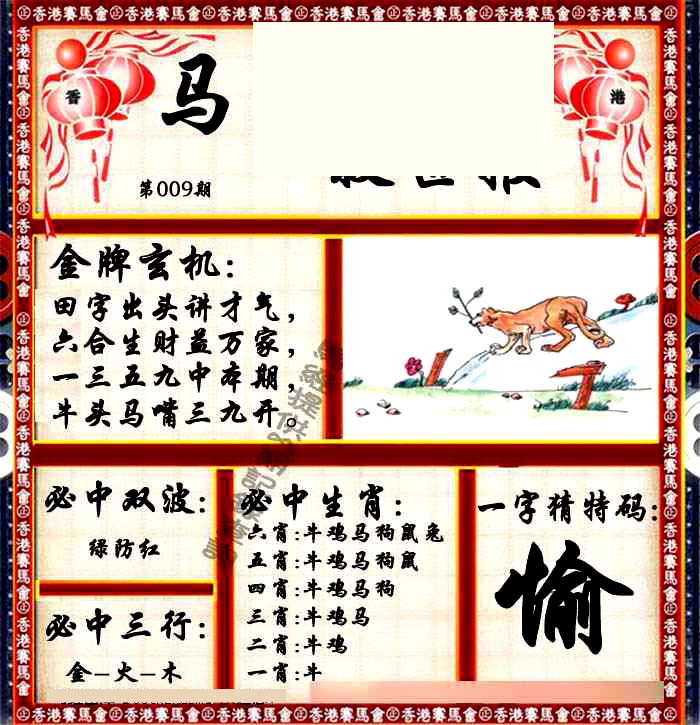 香港賽馬會
香
港
马
第009期
金牌玄机:
田字出头讲才气,
六合生财益万家,
一三五九中本期,
牛头马嘴三九开。
必中双波:
绿防红
必中三行:
金-火-木
必中生肖:
六肖:牛鸡马狗鼠兔
五肖:牛鸡马狗鼠
四肖:牛鸡马狗
三肖:牛鸡马
二肖:牛鸡
一肖:牛
一字猜特码:
愉